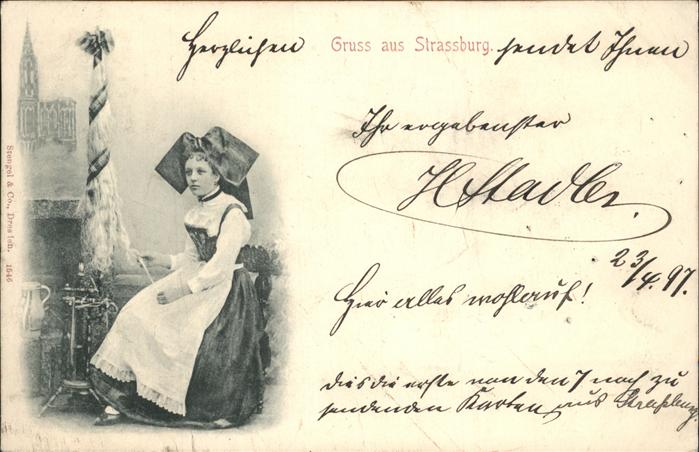 Herzlichen Gruss aus Strassburg. sendet Ihnen
Ihr ergebenster
H Stadler.
23/4.97.
Hier alles wohlauf!
dies die erste von den 7 noch zu
sendenden Karten aus Straßburg
Stengel & Co., Dresden. 1546